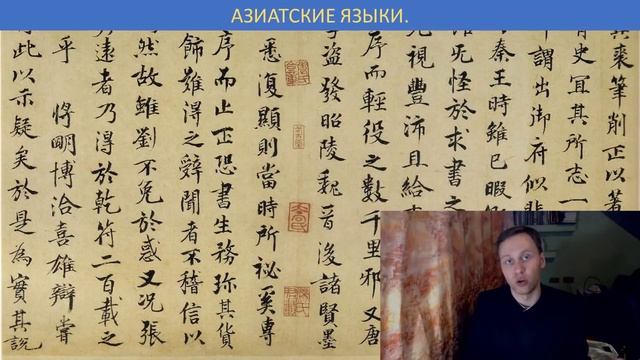 АЗИАТСКИЕ ЯЗЫКИ.
其裒筆削正以著
有史冝其所志一
謂出御府似非
秦王時雖已暇
无怪於求書之
視豐沛且給
序而輕役之數千里邪又唐
盜發昭陵魏晉後諸賢墨
悉復顯則當時所祕奚專
序而止正恐書生務珎其貨
飾難得之辭聞者不稽信以
然故雖劉不免於惑又况張
遠者乃得於乾符二百載之
乎 將明博洽喜雄辯嘗
此以示疑矣於是為實其說